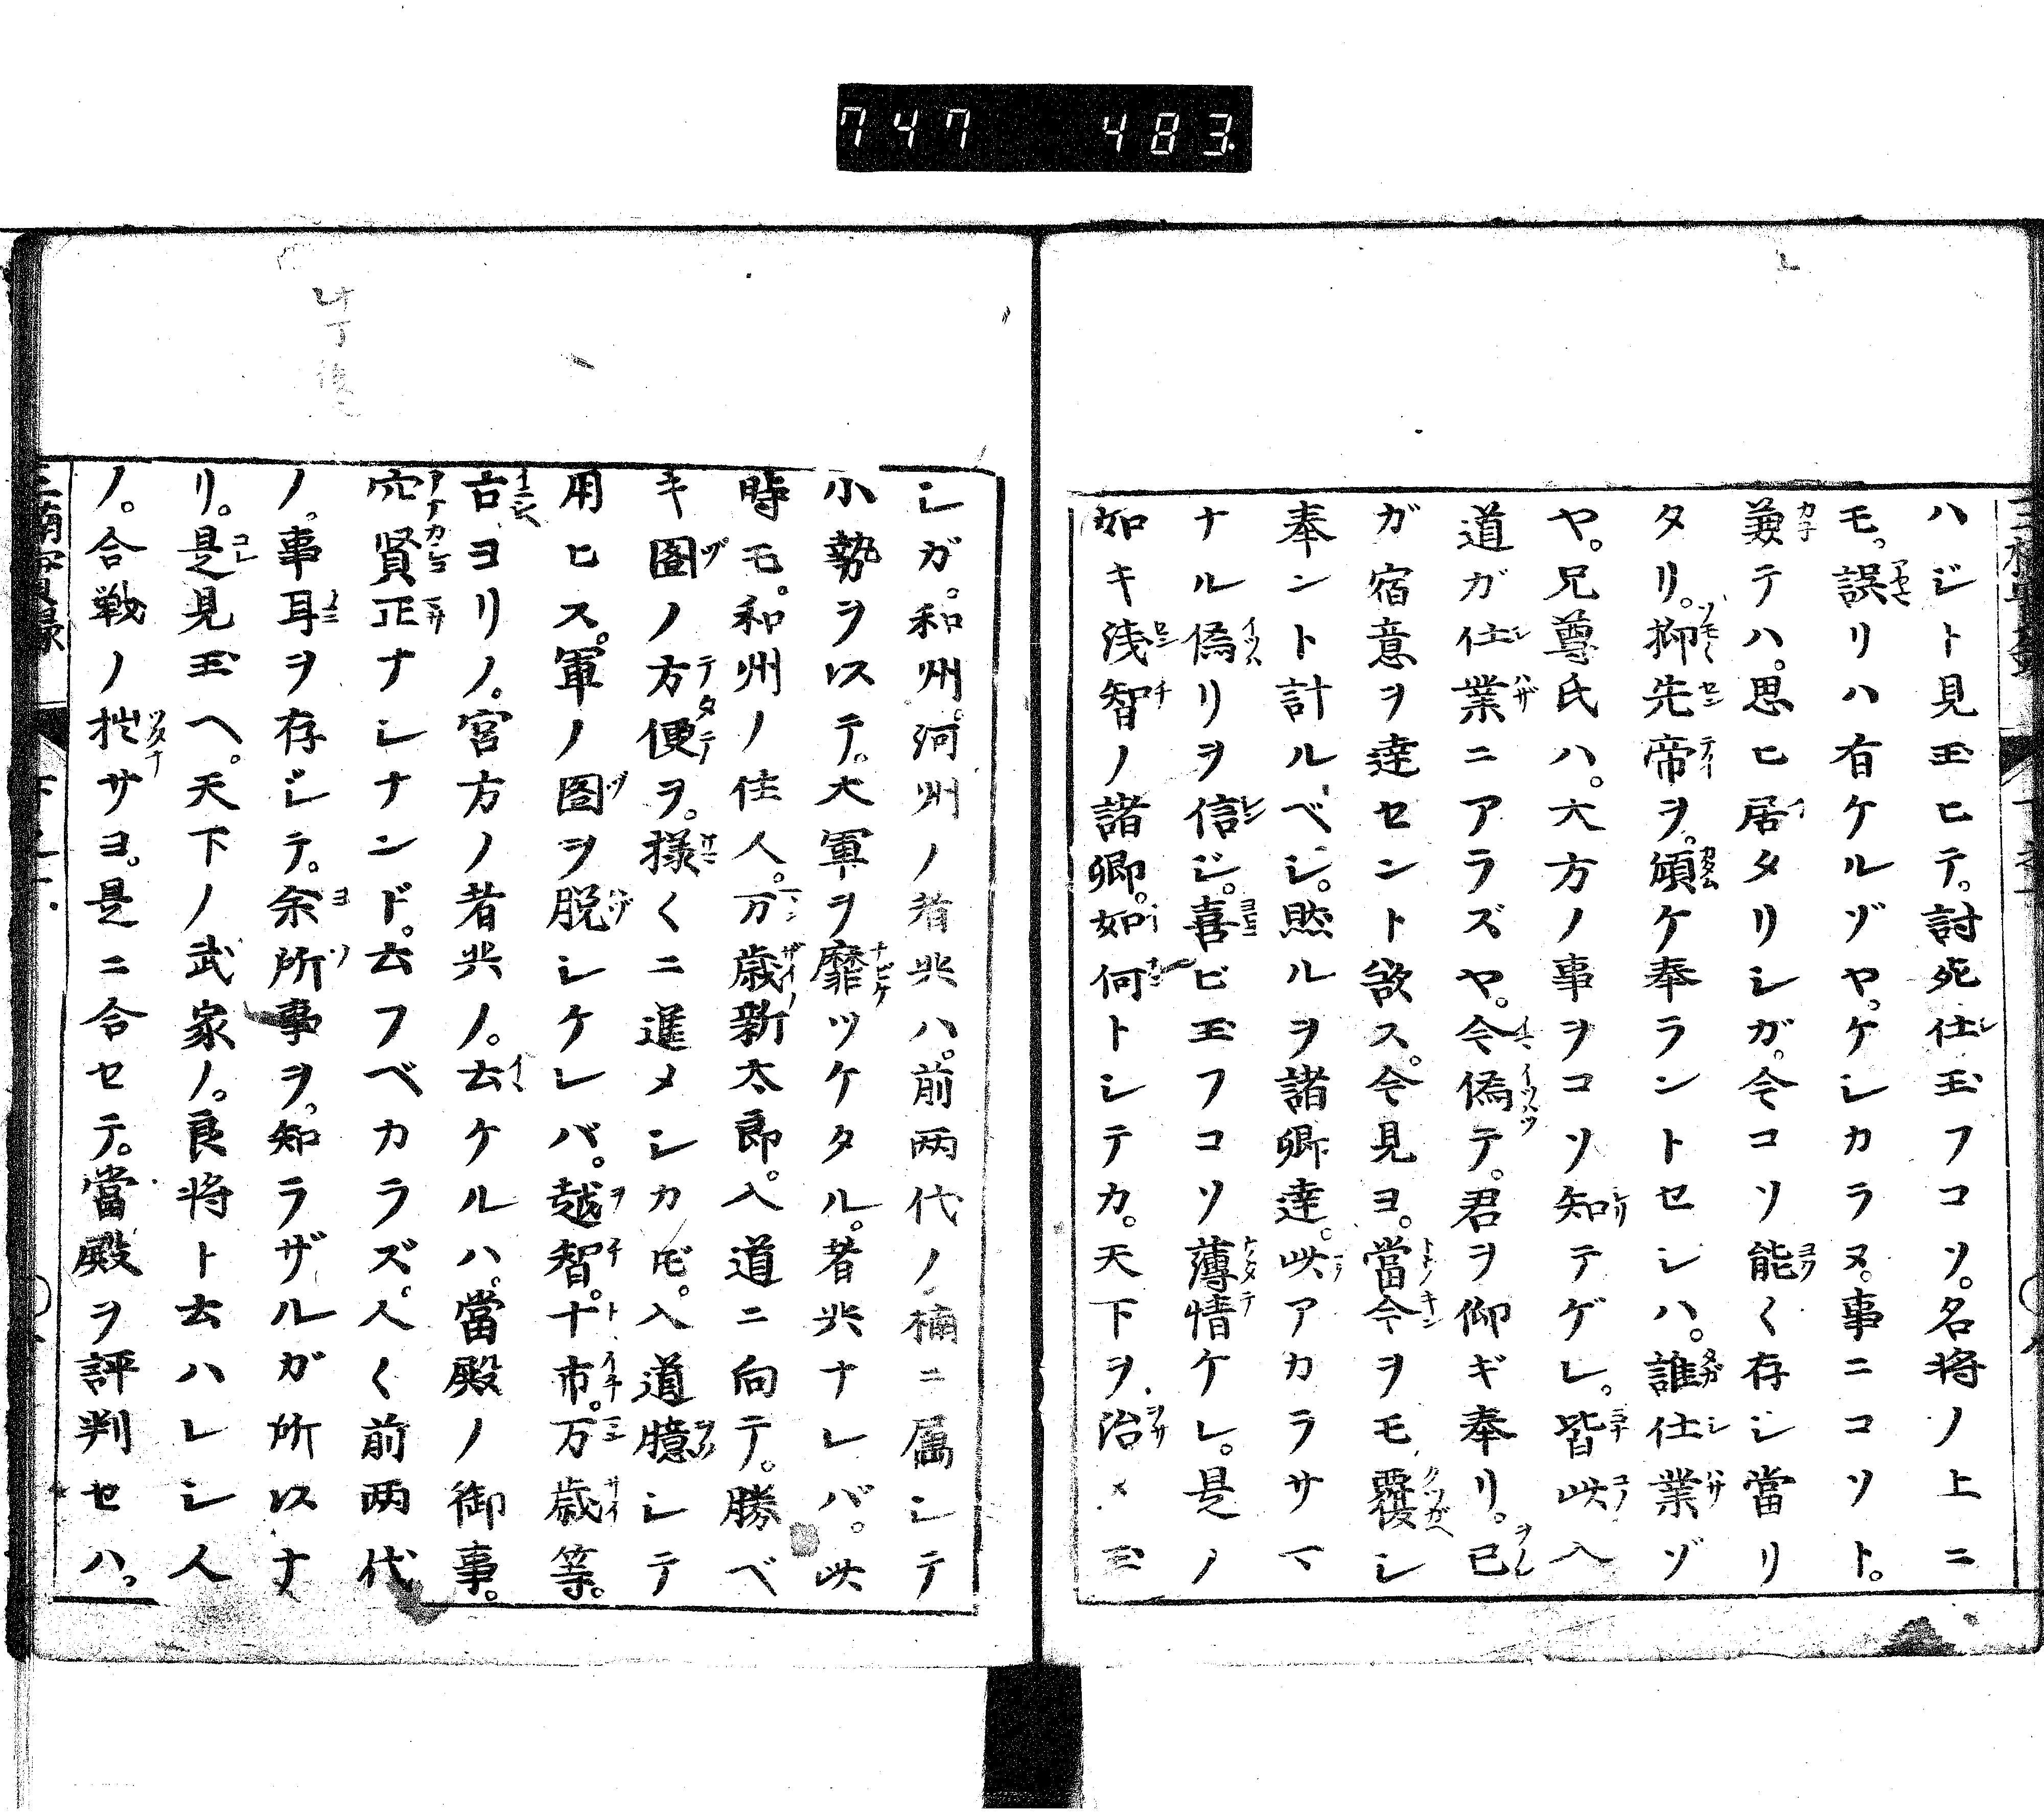 747 483
ハジト見玉ヒテ。討死仕玉フコソ。名将ノ上ニ
モ。誤リハ有ケルゾヤ。ケシカラヌ。事ニコソト。
兼テハ。思ヒ居タリシガ。今コソ能く存シ當リ
タリ。抑先帝ヲ。傾ケ奉ラントセシハ。誰仕業ゾ
ヤ。兄尊氏ハ。大方ノ事ヲコソ知テゲレ。皆此入
道ガ仕業ニアラズヤ。今偽テ。君ヲ仰ギ奉リ。己
ガ宿意ヲ達セント欲ス。今見ヨ。當今ヲモ覆シ
奉ント計ルベシ。然ルヲ諸卿達。此アカラサマ
ナル偽リヲ信ジ。喜ビ玉フコソ薄情ケレ。是ノ
如キ浅智ノ諸卿。如何トシテカ。天下ヲ治メ玉
シガ。和州。河州ノ者共ハ。前両代ノ楠ニ属シテ
小勢ヲ以テ。大軍ヲ靡ツケタル。者共ナレバ。此
時モ。和州ノ住人。万歳新太郎。入道ニ向テ。勝ベ
キ圖ノ方便ヲ。様くニ進メシカ𪜈。入道臆シテ
用ヒス。軍ノ圖ヲ脱シケレバ。越智。十市。万歳等。
古ヨリノ。宮方ノ者共ノ。云ケルハ。當殿ノ御事。
穴賢正ナシナンド。云フベカラズ。人く前両代
ノ。事耳ヲ存ジテ。余所事ヲ。知ラザルガ所以ナ
リ。是見玉ヘ。天下ノ武家ノ。良将ト云ハレシ人
ノ。合戦ノ拙サヨ。是ニ合セテ。當殿ヲ評判セハ。